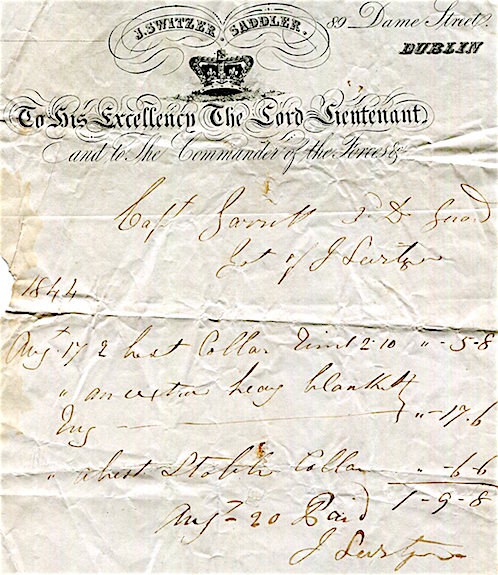 J. SWITZER SADDLER.
89 Dame Street.
DUBLIN
To His Excellency The Lord Lieutenant
and to The Commander of the Forces &c
Capt Garrett 3d D Guard
Bot of J Switzer
1844
Augt 17 2 best Collar 2-10 " - 5 - 8
" an extra heavy blankett
Rug " - 17. 6
" a best Stable Collar " - 6 - 6
1 - 9 - 8
Augt 20 Paid
J Switzer